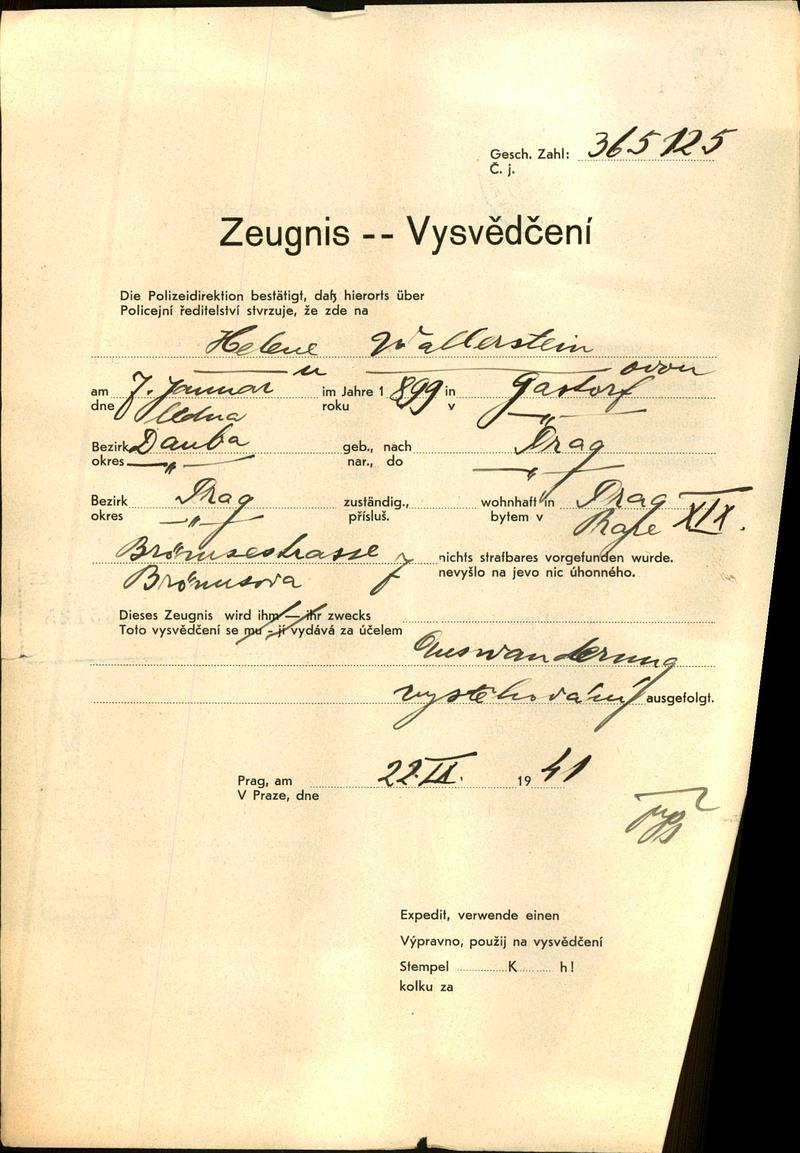 Gesch. Zahl: 365125
Č. j.
Zeugnis -- Vysvědčení
Die Polizeidirektion bestätigt, daß hierorts über
Policejní ředitelství stvrzuje, že zde na
Helene Wallerstein
u ovou
am 7. Januar im Jahre 1 899 in Gastorf
dne ledna roku v "
Bezirk Dauba geb., nach Prag
okres " nar., do "
Bezirk Prag zuständig., wohnhaft in Prag
okres " přísluš. bytem v Praze XIX.
Brömsestrasse 7 nichts strafbares vorgefunden wurde.
Brömsova nevyšlo na jevo nic úhonného.
Dieses Zeugnis wird ihm — ihr zwecks
Toto vysvědčení se mu - jí vydává za účelem
Auswanderung
vystěhování ausgefolgt.
Prag, am 22.IX. 19 41
V Praze, dne
Expedit, verwende einen
Výpravno, použij na vysvědčení
Stempel K h!
kolku za